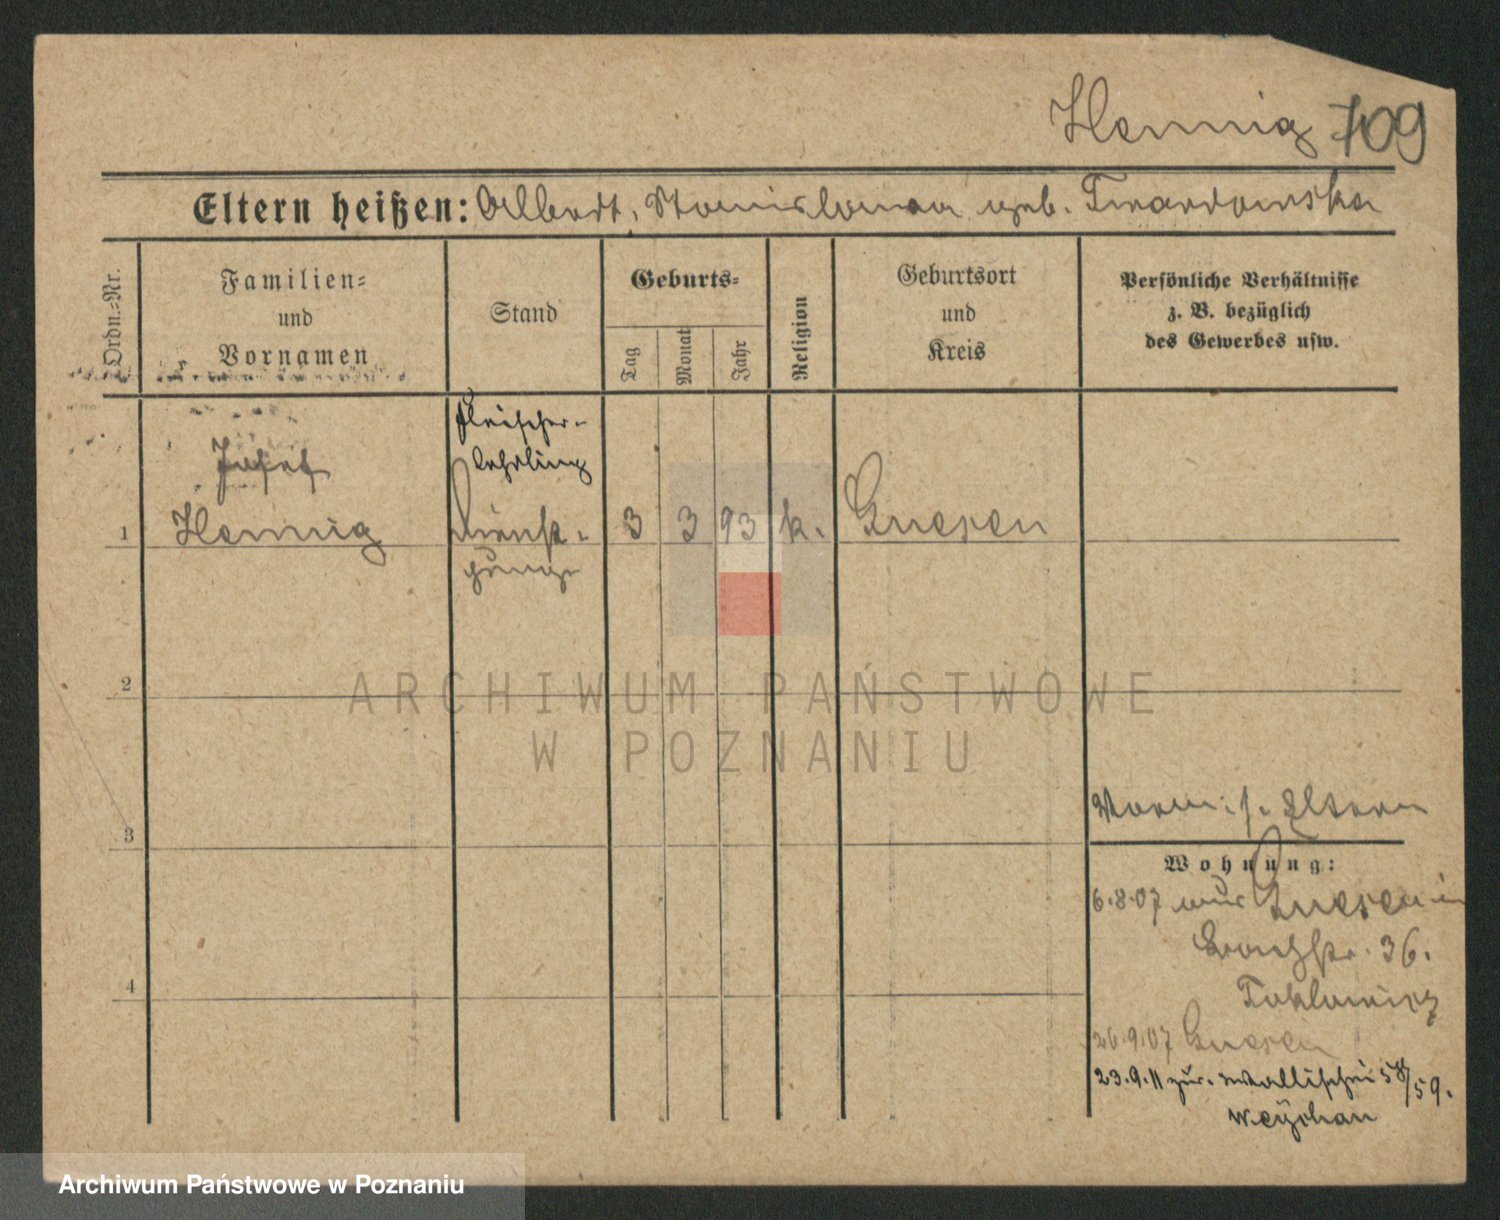 Hennig 709
Eltern heißen: Albert, Stanislawa geb. Twardowska
Ordn.-Nr.
Familien-
und
Vornamen
Stand
Geburts-
Tag
Monat
Jahr
Religion
Geburtsort
und
Kreis
Persönliche Verhältnisse
z. B. bezüglich
des Gewerbes usw.
Fleischer-
lehrling
Josef
1 Hennig Dienst- 3 3 93 k. Gnesen
junge
2
ARCHIWUM PAŃSTWOWE
W POZNANIU
Vorm: s. Eltern
3
Wohnung:
6.8.07 Gnesen in
36.
4
26.9.07 Gnesen
23.9.11 zur. Wallischei 58/59.
Archiwum Państwowe w Poznaniu